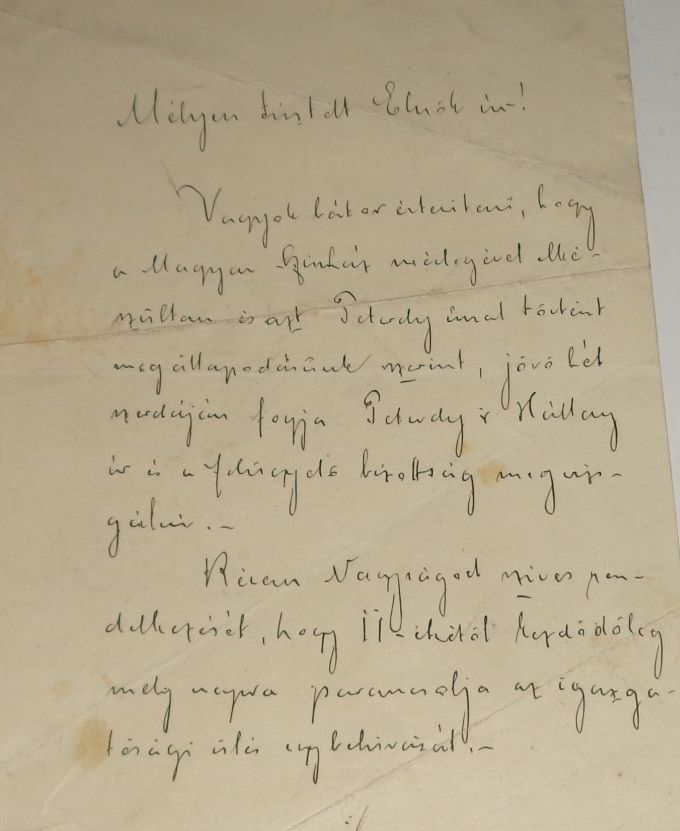 Mélyen tisztelt Elnök úr!
Vagyok bátor értesíteni, hogy
a Magyar Színház mérlegével elké-
szültem és azt Peterdy úrral történt
megállapodásunk szerint, jövő hét
szerdáján fogja Peterdy és Hállay
úr és a felügyelő bizottság megvizs-
gálni.-
Kérem Nagyságod szíves ren-
delkezését, hogy 11-ikétől kezdődőleg
mely napra parancsolja az igazga-
tósági ülés egybehívását.-